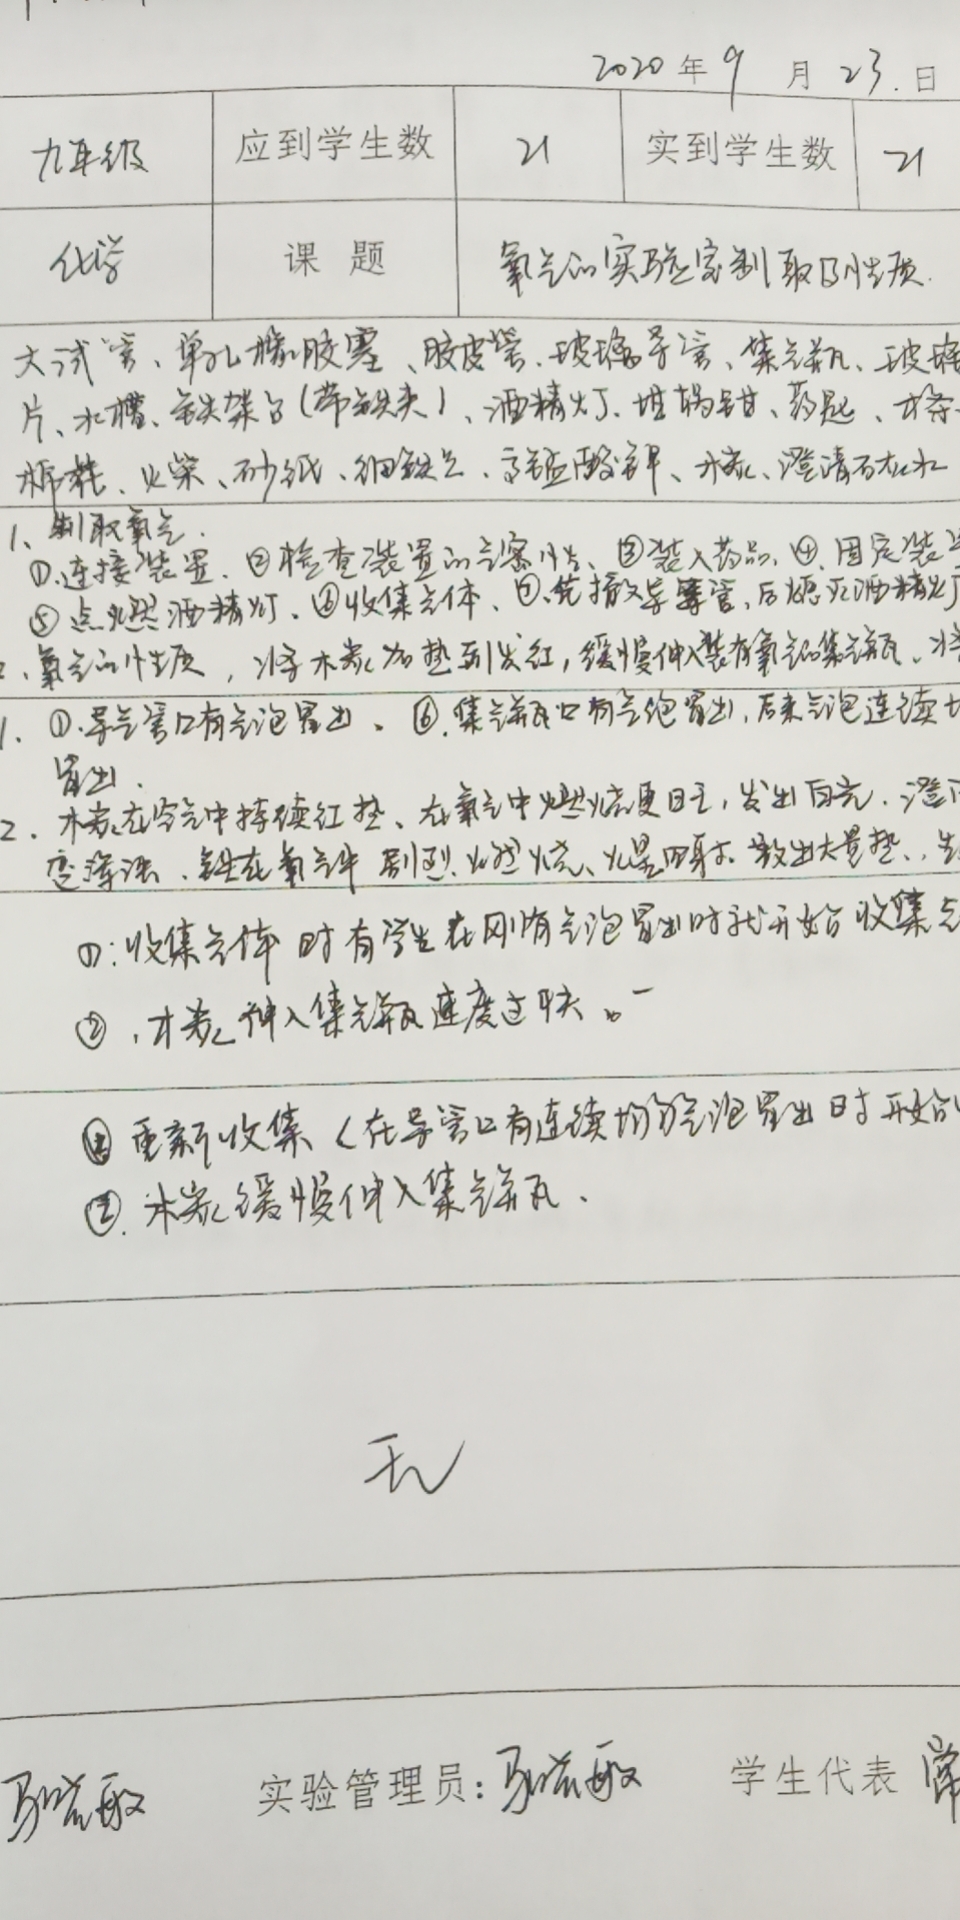 2020年9月23日
九年级 应到学生数 21 实到学生数 21
化学 课题 氧气的实验室制取与性质
大试管、单孔橡胶塞、胶皮管、玻璃导管、集气瓶、玻璃
片、水槽、铁架台(带铁夹)、酒精灯、坩埚钳、药匙、木条
棉花、火柴、砂纸、细铁丝、高锰酸钾、木炭、澄清石灰水
1、制取氧气.
①.连接装置、②检查装置的气密性、③装入药品、④、固定装
⑤点燃酒精灯、⑥收集气体、⑦、先撤导管、后熄灭酒精灯
、氧气的性质,将木炭加热到发红,缓慢伸入装有氧气的集气瓶、
1. ①.导气管口有气泡冒出、⑥.集气瓶口有气泡冒出,后来气泡连续
冒出.
2. 木炭在空气中持续红热、在氧气中燃烧更旺,发出白光.澄
变浑浊、铁在氧气中剧烈燃烧、火星四射、放出大量热、
①:收集气体时有学生在刚有气泡冒出时就开始收集
②、木炭伸入集气瓶速度过快。
重新收集(在导管口有连续均匀气泡冒出时开始
②.木炭缓慢伸入集气瓶、
无
实验管理员: 学生代表